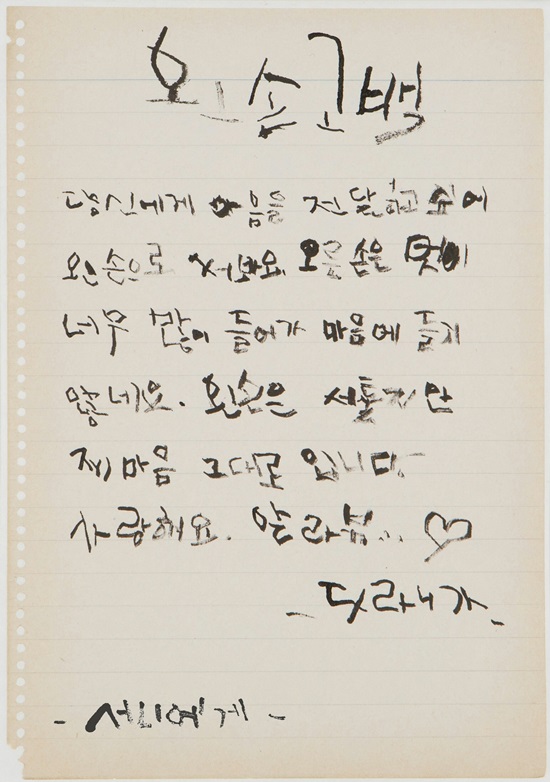 왼손고백
당신에게 마음을 전달하고 싶어
왼손으로 써봐요 오른손은 멋이
너무 많이 들어가 마음에 들지
않네요. 왼손은 서툴지만
제마음 그대로 입니다
사랑해요. 알라붐.. ♡
- 딧라니가 -
- 서니에게 -